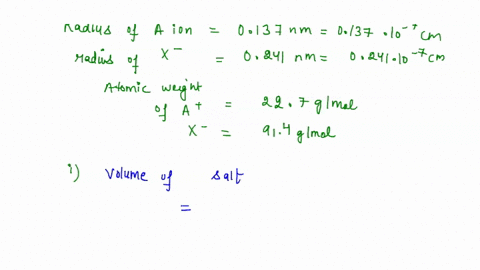 radius of A ion = 0.137 nm = 0.137 · 10⁻⁷ cm
radius of X⁻ = 0.241 nm = 0.241 · 10⁻⁷ cm
Atomic weight
of A⁺ = 22.7 g/mol
X⁻ = 91.4 g/mol
i) Volume of salt
=